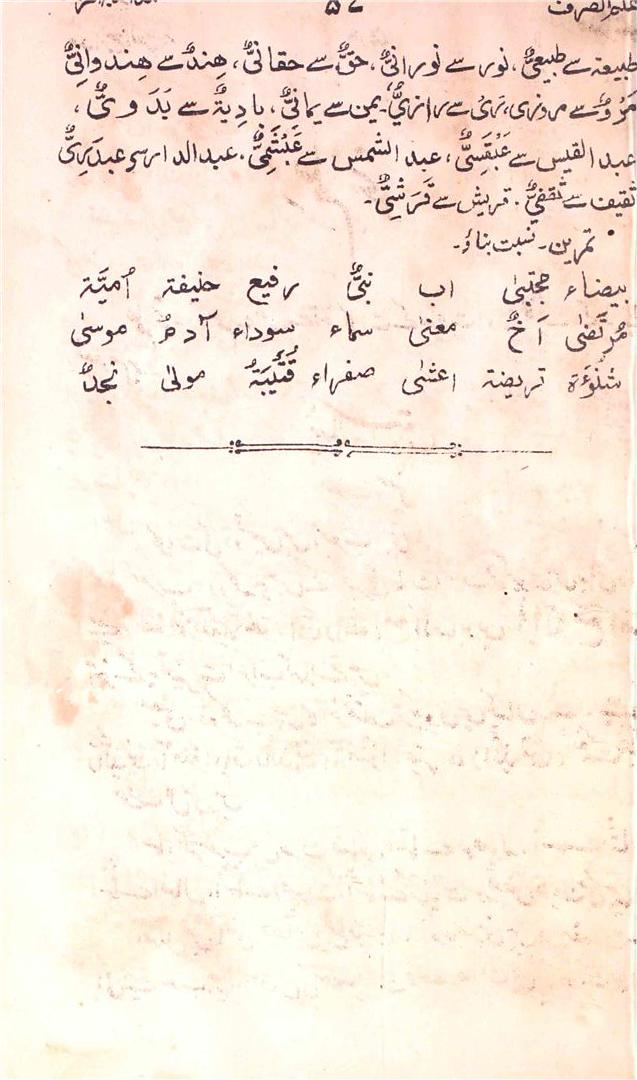 علم الصرف ۵۷
طبیعۃ سے طبیعیٌّ، نور سے نورانیٌّ، حقٌّ سے حقانیٌّ، ھِندٌ سے ھِندوانِیٌّ
مَرْوٌ سے مروزی، رَیٌ سے رازیٌّ۔ یمن سے یمانیٌّ، بادِیۃٌ سے بَدَوِیٌّ،
عبد القیس سے عَبْقَسِیٌّ، عبد الشمس سے عَبْشَمِیٌّ۔ عبد الدار سے عبدَرِیٌّ
ثقیف سے ثقفیٌّ۔ قریش سے قَرَشِیٌّ۔
تمرین۔ نسبت بناؤ۔
بیضاء مجتبیٰ اب نبیٌّ رفیع حنیفۃ اُمیَّۃ
مُرتَضٰی اَخٌ معنیٰ سماء سوداء آدمُ موسیٰ
شَنُوْءَۃ تریضۃ اعشٰی صفراء قُتَیْبَۃُ مولیٰ نجدٌ